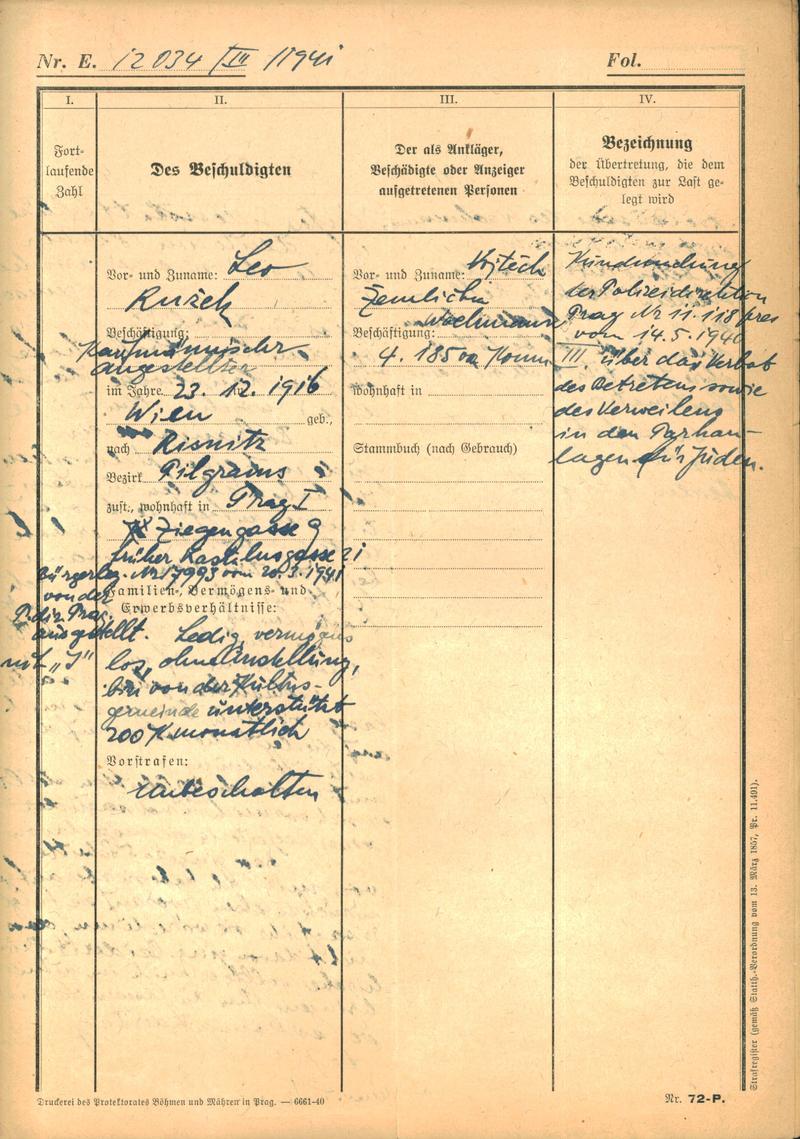 Nr. E. 12034/III 1941
Fol.
I.
Fort-
laufende
Zahl
II.
Des Beschuldigten
III.
Der als Ankläger,
Beschädigte oder Anzeiger
aufgetretenen Personen
IV.
Bezeichnung
der Übertretung, die dem
Beschuldigten zur Last ge-
legt wird
Vor- und Zuname: Leo
Beschäftigung:
Kaufmännischer
angestellter
im Jahre 23. 12. 1916
Wien geb.,
nach Risnitz
Bezirk Pilgrams
zust., wohnhaft in Prag I
Ziegengasse 9
früher Kastulusgasse 21
Bürgerleg. Nr 17993 vom 20.3.1941
von der
P. dir. Prag
ausgestellt.
mit „J"
Familien-, Vermögens- und
Erwerbsverhältnisse:
Ledig, vermögens
los, ohne Anstellung,
bin von der Kultus-
gemeinde unterstützt
200 K monatlich
Vorstrafen:
unbescholten
Vor- und Zuname: Vojtěch
Žemlička
Beschäftigung: Wachmann
4. 185
wohnhaft in
Stammbuch (nach Gebrauch)
Kundmachung
der Polizeidirektion
Prag Nr 11.118 pres
vom 14.5.1940
III. über das Verbot
des Betretens sowie
des Verweilens
in den Parkan-
lagen für Juden.
Strafregister (gemäß Statth.-Verordnung vom 13. März 1857, Pr. 11.491).
Druckerei des Protektorates Böhmen und Mähren in Prag. — 6661-40
Nr. 72-P.